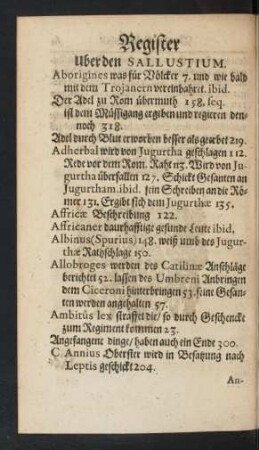 Register
Uber den SALLUSTIUM.
Aborigines was für Völcker 7. und wie bald
mit dem Trojanern vereinbahret. ibid.
Der Adel zu Rom übermuth 158. seq.
ist dem Müssigang ergeben und regieren den-
noch 318.
Adel durch Blut erworben besser als geerbet 219.
Adherbal wird von Jugurtha geschlagen 112.
Rede vor dem Rom. Raht 113. Wird von Ju-
gurtha überfallen 127. Schickt Gesanten an
Jugurtham. ibid. sein Schreiben an die Rö-
mer 131. Ergibt sich dem Jugurthæ 135.
Affricæ Beschreibung 122.
Affricaner daurhafftige gesunde Leute ibid.
Albinus (Spurius) 148. weiß umb des Jugur-
thæ Rathschläge 150.
Allobroges werden des Catilinæ Anschläge
berichtet 52. lassen des Umbreni Anbringen
dem Ciceroni hinterbringen 53. seine Gesan-
ten werden angehalten 57.
Ambitûs lex straffet die / so durch Geschencke
zum Regiment kommen 23.
Angefangene dinge / haben auch ein Ende 300.
C. Annius Oberster wird in Besatzung nach
Leptis geschickt 204.
An-